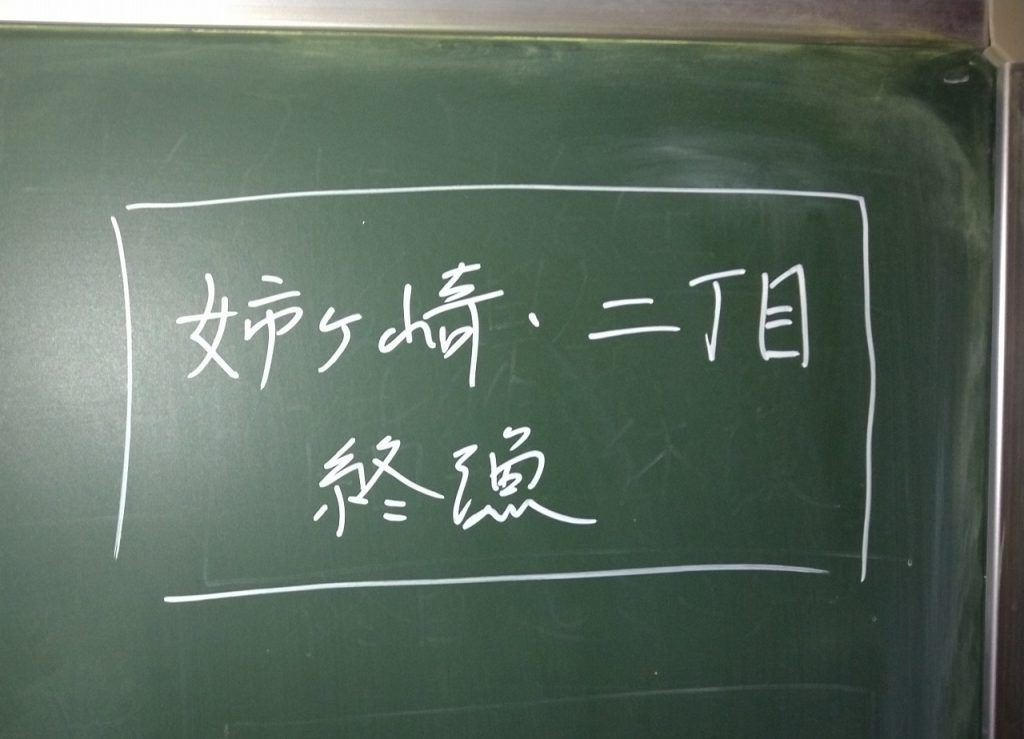 姉ヶ崎・二丁目
終漁